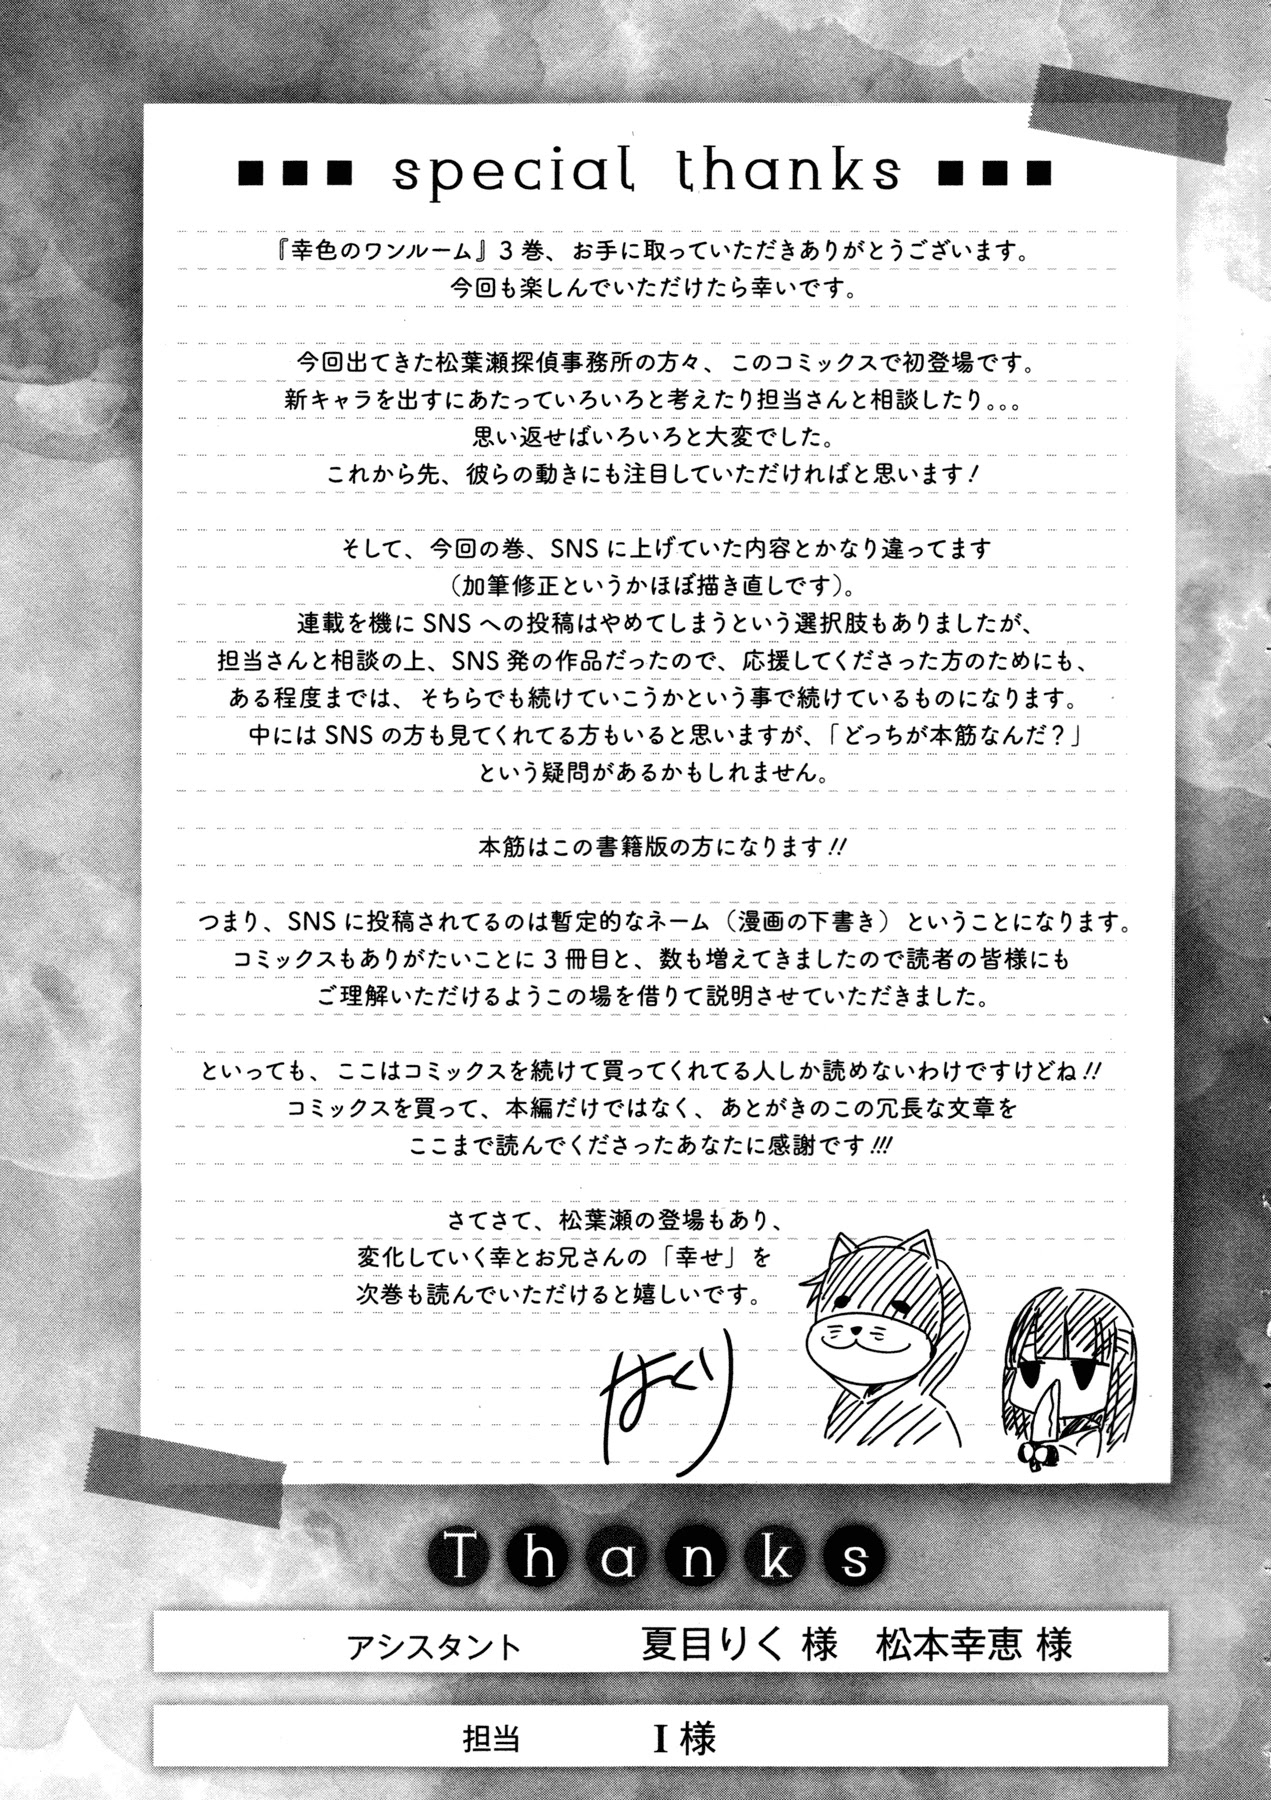 ■■■ special thanks ■■■
『幸色のワンルーム』3巻、お手に取っていただきありがとうございます。
今回も楽しんでいただけたら幸いです。
今回出てきた松葉瀬探偵事務所の方々、このコミックスで初登場です。
新キャラを出すにあたっていろいろと考えたり担当さんと相談したり。。。
思い返せばいろいろと大変でした。
これから先、彼らの動きにも注目していただければと思います!
そして、今回の巻、SNSに上げていた内容とかなり違ってます
（加筆修正というかほぼ描き直しです）。
連載を機にSNSへの投稿はやめてしまうという選択肢もありましたが、
担当さんと相談の上、SNS発の作品だったので、応援してくださった方のためにも、
ある程度までは、そちらでも続けていこうかという事で続けているものになります。
中にはSNSの方も見てくれてる方もいると思いますが、「どっちが本筋なんだ？」
という疑問があるかもしれません。
本筋はこの書籍版の方になります!!
つまり、SNSに投稿されてるのは暫定的なネーム（漫画の下書き）ということになります。
コミックスもありがたいことに3冊目と、数も増えてきましたので読者の皆様にも
ご理解いただけるようこの場を借りて説明させていただきました。
といっても、ここはコミックスを続けて買ってくれてる人しか読めないわけですけどね!!
コミックスを買って、本編だけではなく、あとがきのこの冗長な文章を
ここまで読んでくださったあなたに感謝です!!!
さてさて、松葉瀬の登場もあり、
変化していく幸とお兄さんの「幸せ」を
次巻も読んでいただけると嬉しいです。
はくり
Thanks
アシスタント 夏目りく 様 松本幸恵 様
担当 I 様